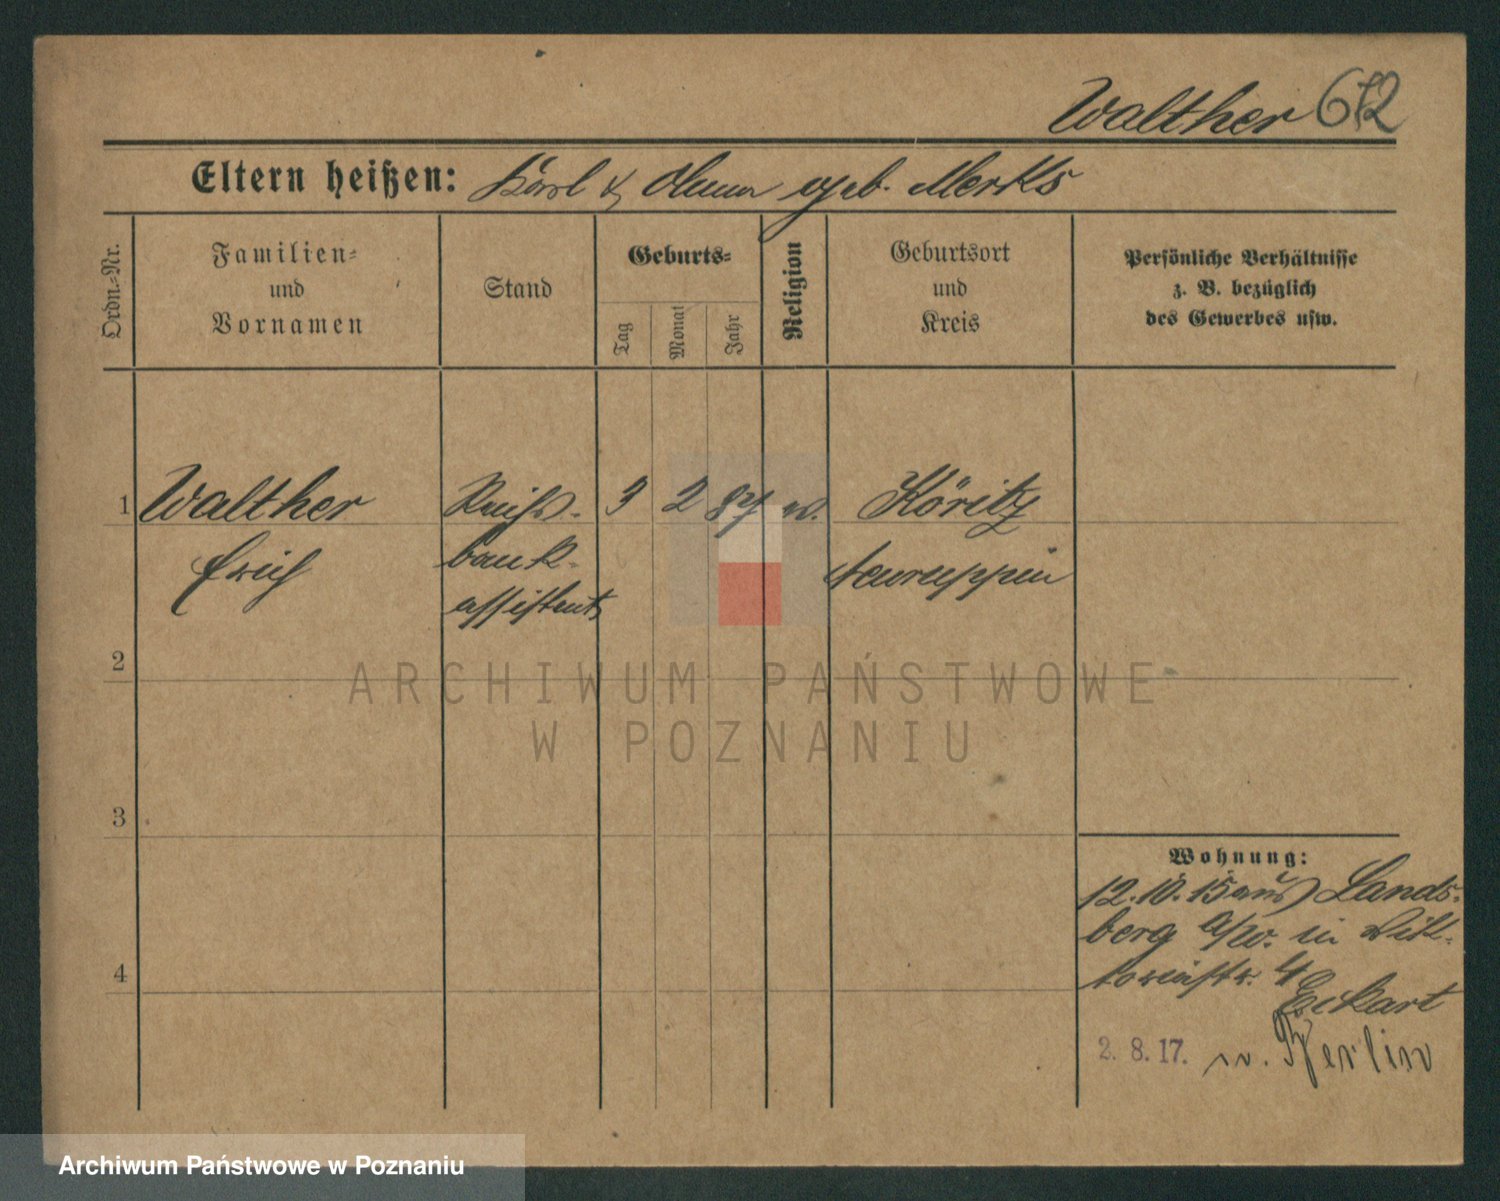 Walther 672
Eltern heißen: Karl & Anna geb. Merks
Ordn.-Nr.
Familien-
und
Vornamen
Stand
Geburts-
Tag
Monat
Jahr
Religion
Geburtsort
und
Kreis
Persönliche Verhältnisse
z. B. bezüglich
des Gewerbes usw.
1 Walther Reichs- 3 2 87 ev. Köritz
Erich bank- Neuruppin
assistent
2
3
4
Wohnung:
12.10.15 aus Lands-
berg a/W. in Vik-
toriastr. 4
Eckart
2. 8. 17. n. Berlin
ARCHIWUM PAŃSTWOWE
W POZNANIU
Archiwum Państwowe w Poznaniu